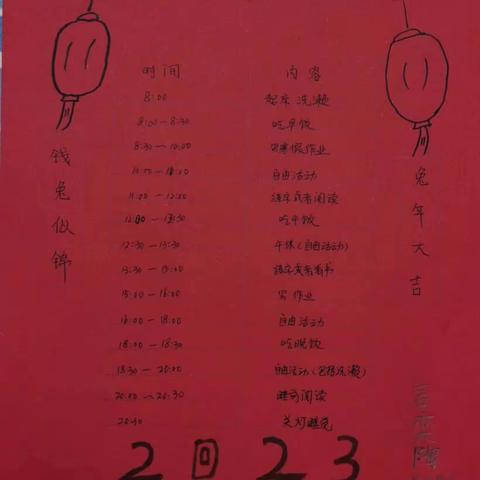 时间 内容
8:00 起床洗漱
8:00-8:30 吃早饭
8:30-10:00 写寒假作业
自由活动
11:00-12:00 练字或者阅读
吃午饭
12:30-13:30 午休(自由活动)
13:30-15:00 练字或者看书
15:00-16:00 写作业
16:00-18:00 自由活动
18:00-18:30 吃晚饭
18:30-20:00 自由活动(包括洗漱)
20:00-20:30 睡前阅读
20:30 关灯睡觉
钱兔似锦
兔年大吉
2023